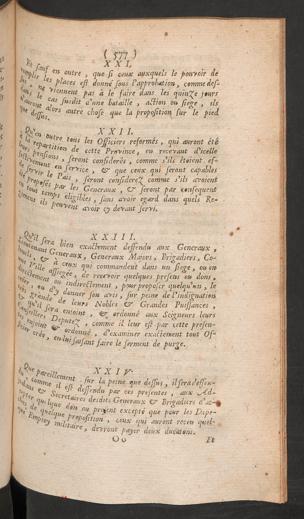 ( 577 )
XXI.
Et sauf en outre, que si ceux auxquels le pouvoir de
remplir les places est donné sous l'approbation, comme des-
sus, ne viennent pas à le faire dans les quinze jours
dans le cas susdit d'une bataille, action ou siege, ils
n'auront alors autre chose que la proposition sur le pied
que dessus.
XXII.
Qu'en outre tous les Officiers reformés, qui auront été
à la repartition de cette Province, en recevant d'icelle
leurs pensions, seront considerés, comme s'ils étoient ef-
fectivement en service, & que ceux qui seront capables
de servir le Païs, seront considerez comme s'ils avoient
été proposés par les Generaux, & seront par consequent
en tout temps eligibles, sans avoir egard dans quels Re-
giment ils peuvent avoir cy devant servi.
XXIII.
Qu'il sera bien exactement deffendu aux Generaux,
Lieutenans Generaux, Generaux Majors, Brigadiers, Co-
lonels, & à ceux qui commandent dans un siege, ou en
Ville assiegée, de recevoir quelques presens ou dons,
directement ou indirectement, pour proposer quelqu'un, le
ou d'y donner son avis, sur peine de l'indignation
grande de leurs Nobles & Grandes Puissances,
& qu'il sera enjoint, & ordonné aux Seigneurs leurs
Conseillers Deputez, comme il leur est par cette presen-
te enjoint & ordonné, d'examiner exactement tout Of-
ficier créé, en lui faisant faire le serment de purge.
XXIV.
Que pareillement sur la peine que dessus, il sera deffen-
du comme il est deffendu par ces presentes, aux Ad-
judans & Secretaires desdits Generaux & Brigadiers d'ac-
cepter quelque don ou present excepté que pour les Depe-
ches de quelque proposition, ceux qui auront receu quel-
que Employ militaire, devront payer deux ducatons.
Oo Et